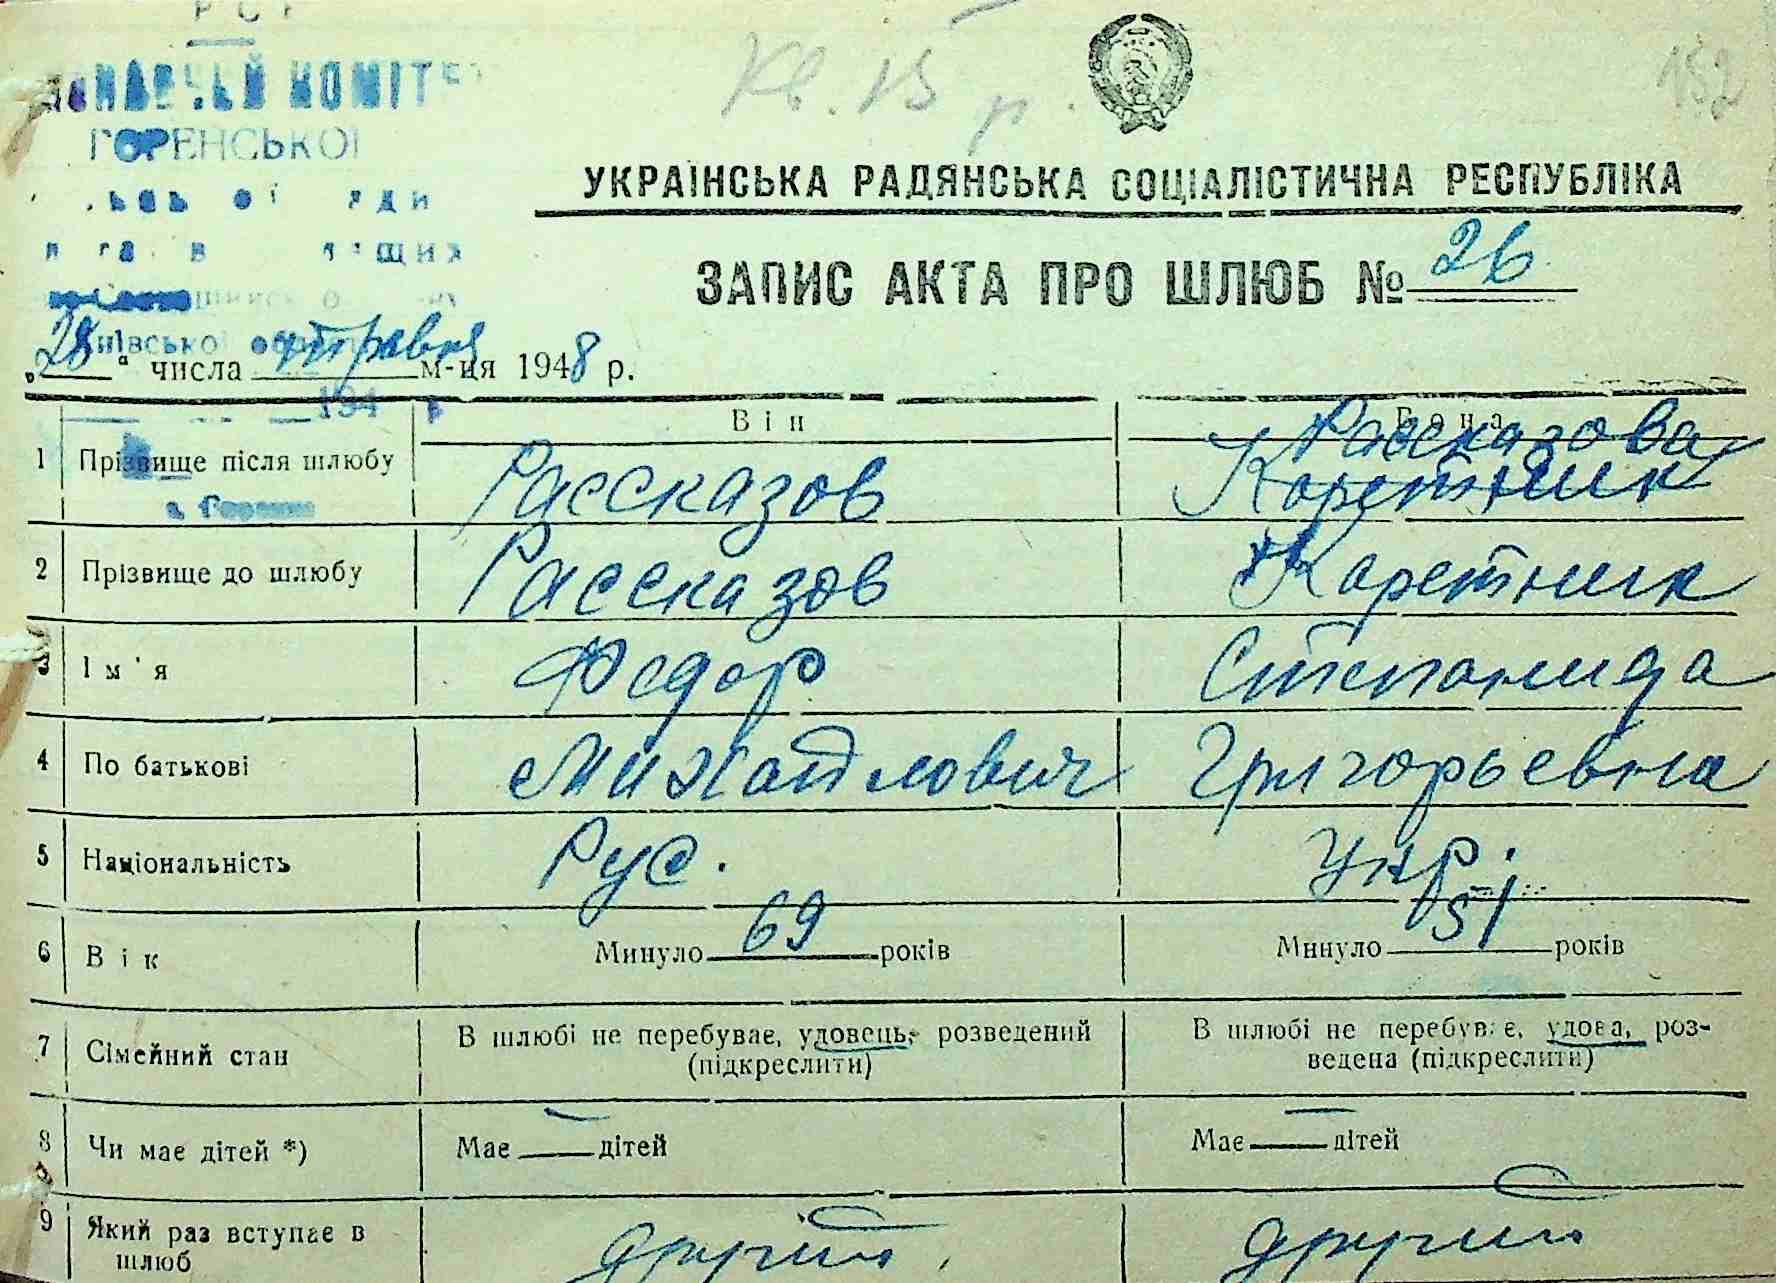 Кв. 15 р.
152
ГОРЕНСЬКОЇ
УКРАЇНСЬКА РАДЯНСЬКА СОЦІАЛІСТИЧНА РЕСПУБЛІКА
ЗАПИС АКТА ПРО ШЛЮБ № 26
„28" числа травня м-ця 1948 р.
194 р
Він Вона
Рассказова
1 Прізвище після шлюбу Рассказов Коретник
2 Прізвище до шлюбу Рассказов Коретник
3 Ім'я Федор Степанида
4 По батькові Михайлович Григорьевна
5 Національність Рус. Укр.
6 Вік Минуло 69 років Минуло 51 років
7 Сімейний стан В шлюбі не перебуває, удовець, розведений (підкреслити) В шлюбі не перебуває, удова, роз-
ведена (підкреслити)
8 Чи має дітей *) Має — дітей Має — дітей
9 Який раз вступає в шлюб другий другий